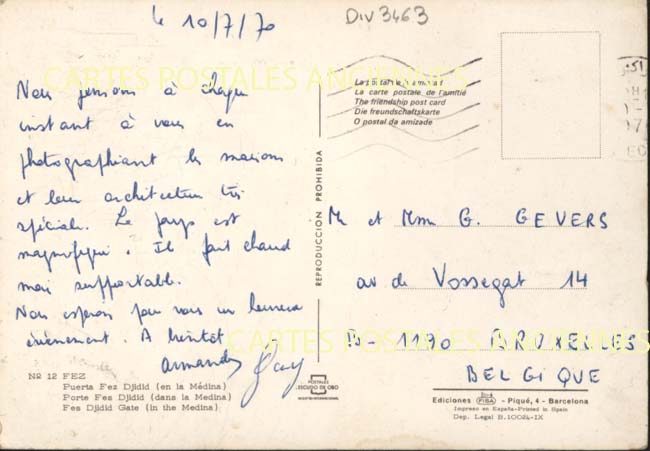 le 10/7/70
DIV 3463
CARTES POSTALES ANCIENNES
Nous pensons à chaque
instant à vous en
photographiant les maisons
et leur architecture très
spéciale. Le pays est
magnifique. Il fait chaud
mais supportable.
Nous espérons pour vous un heureux
évènement. A bientôt
La postal de la amistad
La carte postale de l'amitié
The friendship post card
Die freundschaftskarte
O postal da amizade
REPRODUCCION PROHIBIDA
Mr et Mme G. GEVERS
av de Vossegat 14
B-1190 BRUXELLES
BELGIQUE
CARTES POSTALES ANCIENNES
NR 12 FEZ
Puerta Fez Djidid (en la Médina)
Porte Fes Djidid (dans la Medina)
Fes Djdid Gate (in the Medina)
POSTALES
ESCUDO DE ORO
Ediciones FISA - Piqué, 4 - Barcelona
Impreso en España-Printed in Spain
Dep. Legal B.10024-IX